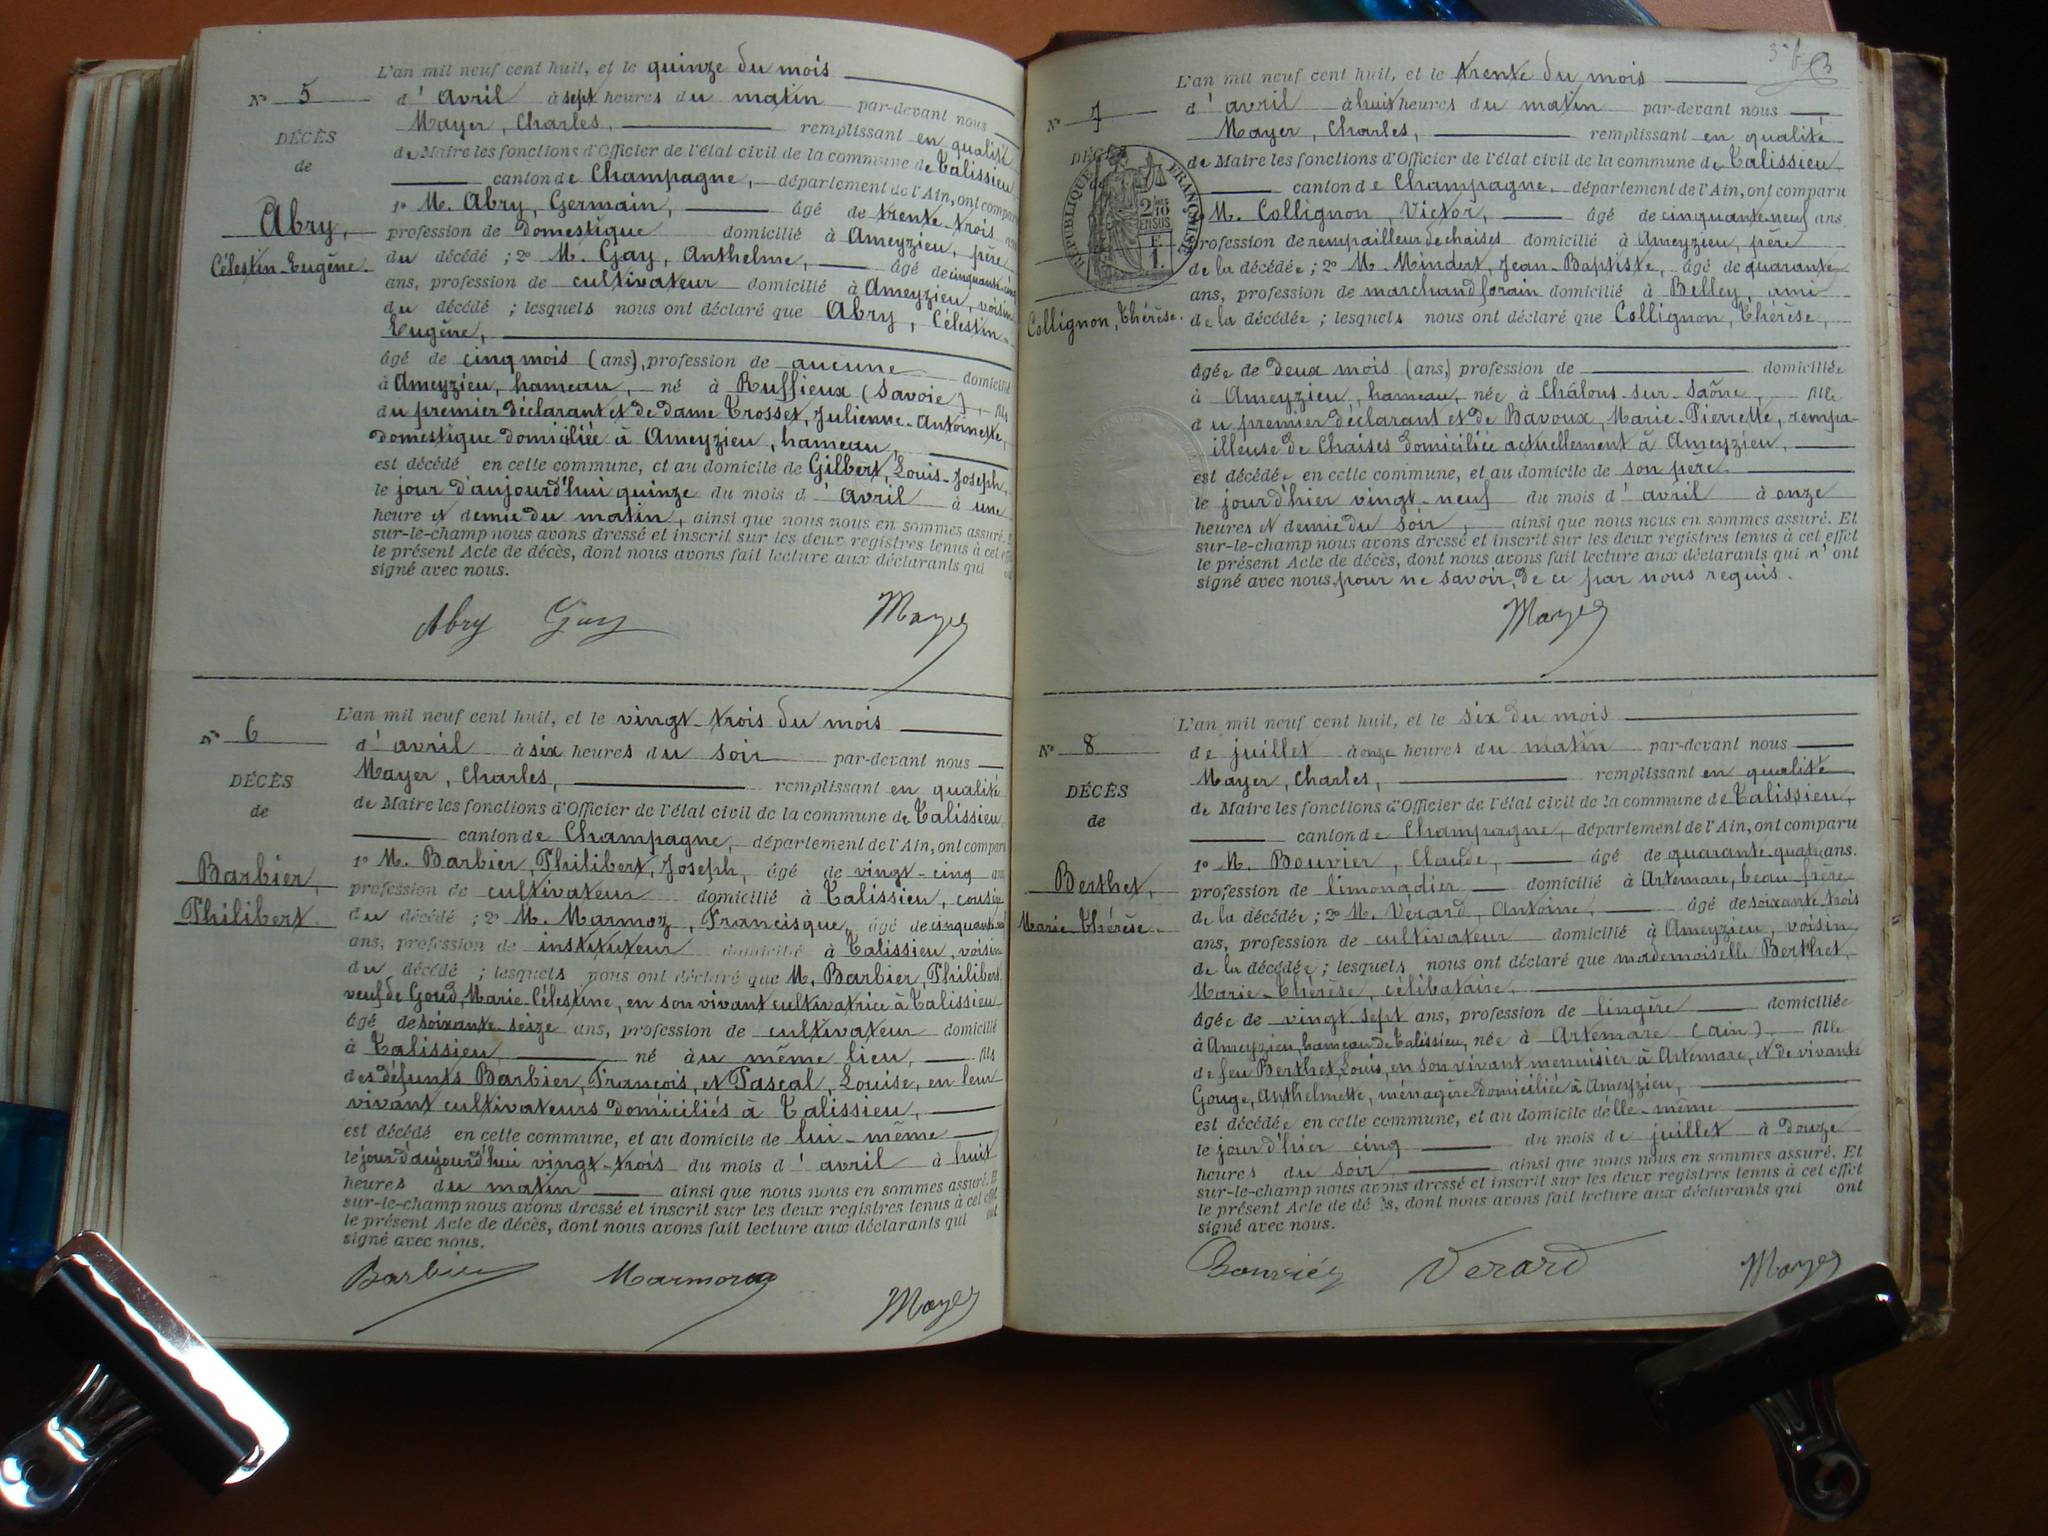 L'an mil neuf cent huit, et le quinze du mois
N° 5
d'avril à sept heures du matin par-devant nous
Mayer, Charles, remplissant en qualité
DÉCÈS
de Maire les fonctions d'Officier de l'état civil de la commune de Talissieu,
de
canton de Champagne, département de l'Ain, ont comparu
1° M. Abry, Germain, âgé de trente-trois ans
Abry,
profession de domestique domicilié à Ameyzieu, père
Célestin Eugène.
du décédé ; 2° M. Gay, Anthelme, âgé de cinquante-cinq
ans, profession de cultivateur domicilié à Ameyzieu, voisin
du décédé ; lesquels nous ont déclaré que Abry, Célestin
Eugène,
âgé de cinq mois (ans), profession de aucune domicilié
à Ameyzieu, hameau, né à Ruffieux (Savoie), fils
du premier déclarant et de dame Trosset, Julienne-Antoinette,
domestique domiciliée à Ameyzieu, hameau,
est décédé en cette commune, et au domicile de Gilbert, Louis-Joseph,
le jour d'aujourd'hui quinze du mois d'avril à une
heure et demie du matin, ainsi que nous nous en sommes assuré. Et
sur-le-champ nous avons dressé et inscrit sur les deux registres tenus à cet effet
le présent Acte de décès, dont nous avons fait lecture aux déclarants qui ont
signé avec nous.
Abry Gay Mayer
L'an mil neuf cent huit, et le vingt-trois du mois
N° 6
d'avril à six heures du soir par-devant nous
Mayer, Charles, remplissant en qualité
DÉCÈS
de Maire les fonctions d'Officier de l'état civil de la commune de Talissieu,
de
canton de Champagne, département de l'Ain, ont comparu
1° M. Barbier, Philibert, Joseph, âgé de vingt-cinq ans
Barbier,
profession de cultivateur domicilié à Talissieu, cousin
Philibert.
du décédé ; 2° M. Marmoz, Francisque, âgé de
ans, profession de instituteur domicilié à Talissieu, voisin
du décédé ; lesquels nous ont déclaré que M. Barbier, Philibert,
veuf de Goud, Marie-Célestine, en son vivant cultivatrice à Talissieu
âgé de soixante-seize ans, profession de cultivateur domicilié
à Talissieu né au même lieu, fils
des défunts Barbier, François, et Pascal, Louise, en leur
vivant cultivateurs domiciliés à Talissieu,
est décédé en cette commune, et au domicile de lui-même
le jour d'aujourd'hui vingt-trois du mois d'avril à huit
heures du matin ainsi que nous nous en sommes assuré. Et
sur-le-champ nous avons dressé et inscrit sur les deux registres tenus à cet effet
le présent Acte de décès, dont nous avons fait lecture aux déclarants qui ont
signé avec nous.
Barbier Marmoz Mayer
L'an mil neuf cent huit, et le trente du mois
N° 7
d'avril à huit heures du matin par-devant nous
Mayer, Charles, remplissant en qualité
DÉCÈS
de Maire les fonctions d'Officier de l'état civil de la commune de Talissieu,
RÉPUBLIQUE FRANÇAISE
2/10 EN SUS
canton de Champagne, département de l'Ain, ont comparu
M. Collignon, Victor, âgé de cinquante-neuf ans
profession de rempailleur de chaises domicilié à Ameyzieu, père
de la décédée ; 2° M. Mindert, Jean-Baptiste, âgé de quarante
ans, profession de marchand forain domicilié à Belley, ami
Collignon, Thérèse.
de la décédée ; lesquels nous ont déclaré que Collignon, Thérèse,
âgée de deux mois (ans,) profession de domiciliée
à Ameyzieu, hameau, née à Châlons-sur-Saône, fille
du premier déclarant et de Bavoux, Marie-Pierrette, rempa-
illeuse de Chaises domiciliée actuellement à Ameyzieu,
est décédée en cette commune, et au domicile de son père.
le jour d'hier vingt-neuf du mois d'avril à onze
heures et demie du soir, ainsi que nous nous en sommes assuré. Et
sur-le-champ nous avons dressé et inscrit sur les deux registres tenus à cet effet
le présent Acte de décès, dont nous avons fait lecture aux déclarants qui n'ont
signé avec nous pour ne savoir, de ce par nous requis.
Mayer
L'an mil neuf cent huit, et le six du mois
N° 8
de juillet à onze heures du matin par-devant nous
Mayer, Charles, remplissant en qualité
DÉCÈS
de Maire les fonctions d'Officier de l'état civil de la commune de Talissieu,
de
canton de Champagne, département de l'Ain, ont comparu
1° M. Bouvier, Claude, âgé de quarante-quatre ans.
Berthet,
profession de limonadier domicilié à Artemare, beau-frère
Marie-Thérèse.
de la décédée ; 2° M. Vérard, Antoine, âgé de soixante-trois
ans, profession de cultivateur domicilié à Ameyzieu, voisin
de la décédée ; lesquels nous ont déclaré que mademoiselle Berthet,
Marie-Thérèse, célibataire,
âgée de vingt-sept ans, profession de lingère domiciliée
à Ameyzieu, hameau de Talissieu, née à Artemare (Ain) fille
de feu Berthet, Louis, en son vivant menuisier à Artemare, et de vivante
Gouge, Anthelmette, ménagère domiciliée à Ameyzieu,
est décédée en cette commune, et au domicile d'elle-même
le jour d'hier cinq du mois de juillet à douze
heures du soir ainsi que nous nous en sommes assuré. Et
sur-le-champ nous avons dressé et inscrit sur les deux registres tenus à cet effet
le présent Acte de décès, dont nous avons fait lecture aux déclarants qui ont
signé avec nous.
Bouvier Verard Mayer